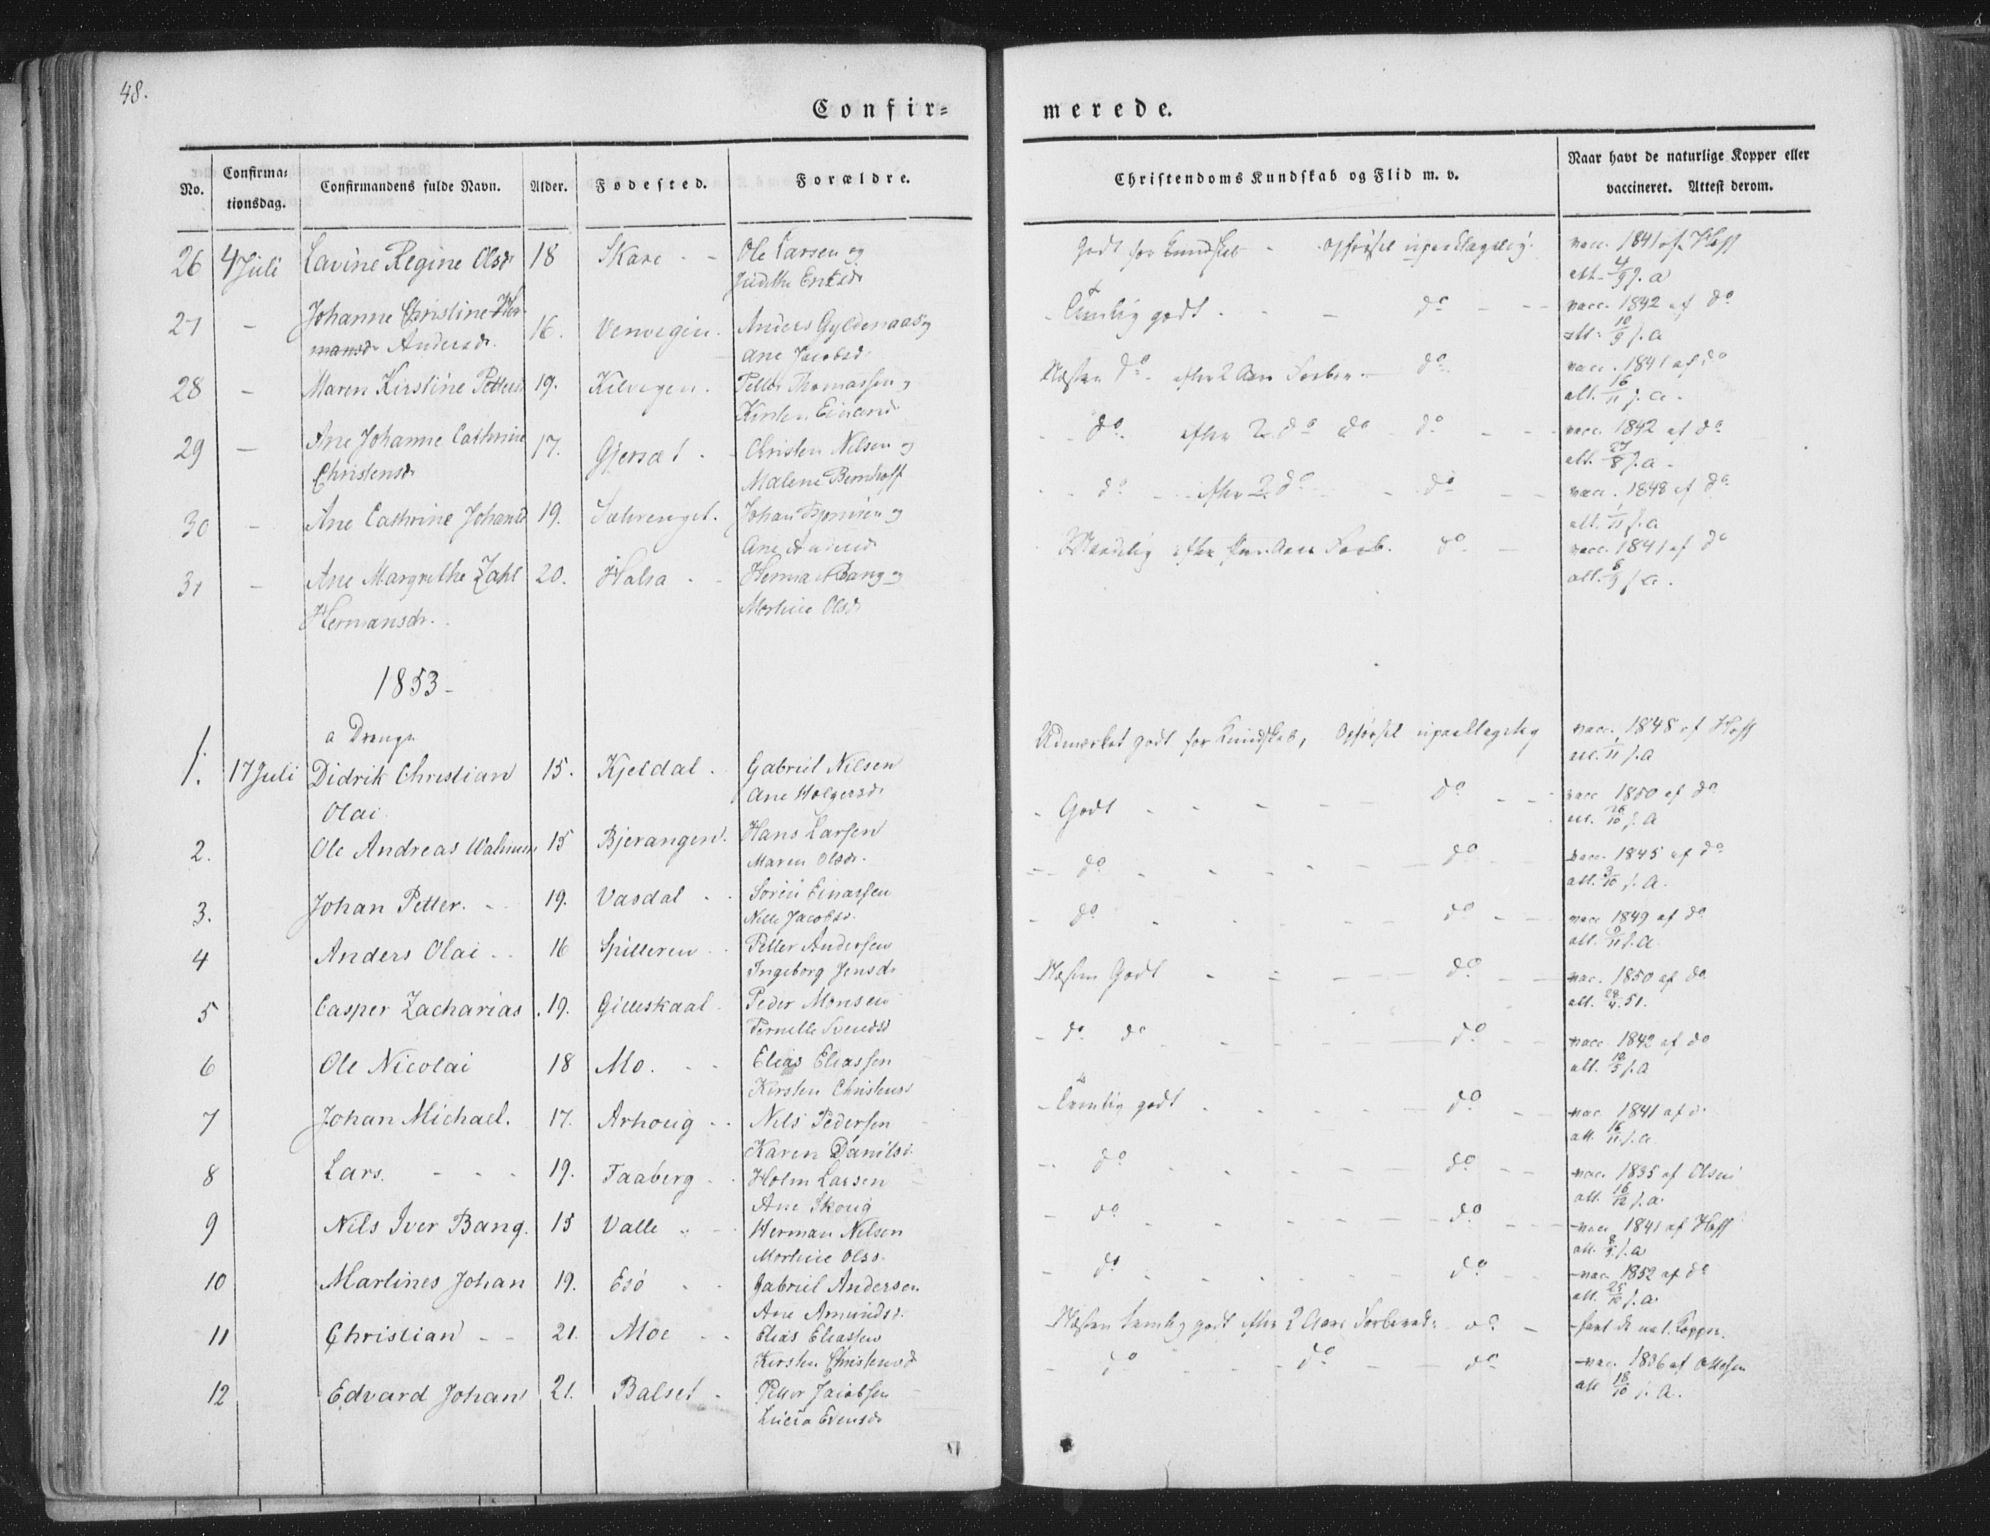 48.
Confir=
merede.
No.
Confirma=
tionsdag.
Confirmandens fulde Navn.
Alder.
Fødested.
Forældre.
Christendoms Kundskab og Flid m. v.
Naar havt de naturlige Kopper eller
vaccineret. Attest derom.
26 4 Juli Lavine Regine Olsdr 18 Skare - - Ole Larsen og
Judithe
Godt for Kundskab - Opførsel upaaklagelig.
vacc. 1841 af Hoff
att. 4/9 s. a
27 - Johanne Christine Her-
mansdr Andersdr. 16. Anders Gyldenaas og
Ane Jacobsd.
- Temlig godt - - - do - -
vacc. 1842 af do
att. 10/9 s. a
28 - Maren Kirstine Petters 19. Kilvegen. Petter Thomassen og
Kirsten
Næsten do - efter 2 Aars Forber. - do.
vacc. 1841 af do
att. 16/11 s. a.
29 - Ane Johanne Cathrine
Christensdr 17. Gjersæt. - Christen Nilsen og
Malene Bernhoft
- - do. efter 2 do do - do - -
vacc. 1842 af do
att. 27/8 s. a.
30 - Ane Cathrine Johansd 19. Johan og
Ane Andersd
- - do - - efter 2 do - do - -
vacc. 1848 af do
att. 1/11 s. a
31 - Ane Margrethe Zahl
Hermansdr. 20. Halsa - - Herman Bang og
Mortine Olsdr
efter Aars Forb. do. -
vacc. 1841 af do
att. 8/9 s. a.
1853-
a Drenge
1. 17 Juli Didrik Christian
Olai. 15. Kjeldal. Gabriel Nilsen
Ane Holgersdr
Udmærket godt for Kundskab, Opførsel upaaklagelig
vacc. 1848 af Hoff
att. 1/11 s. a
2. Ole Andreas 15 Bjerangen. Hans Larsen
Maren Olsdr.
- Godt - - - - - do - -
vacc. 1850 af do
att. 26/10 s. a
3. Johan Petter. - 19. Vasdal - - Sören Einarsen
Nille Jacobsdr.
- do - - - - do - -
vacc. 1845 af do
att. 9/10 s. a.
4 Anders Olai - - 16 Spilderen - - Petter Andersen
Ingeborg Jensdr
- do - - - - do - -
vacc 1849 af do
att. 9/11 s. a.
5 Casper Zacharias. 19. Gilleskaal - Peder Monsen
Pernelle Svendsd
Næsten Godt - - - - do - -
vac. 1850 af do
att. 51.
6 Ole Nicolai 18 Mo. - - Elias Eliassen
Kirsten Christensd
- do do - - - - do - -
vacc 1842 af do
att. 10/5 s. a
7 Johan Michael. 17. Arhoug - - Nils Pedersen
Karen Danilsd.
- Temlig godt - - - - do - -
vac. 1841 af do
att. 16/11 s. a
8 Lars. - - - 19. Faaberg - - Holm Larsen
Ane Skoug
- do - - - - do - -
vac. 1835 af Olsen
att. 16/12 s. a.
9 Nils Iver Bang. 15 Valle - - Herman Nilsen
Mortine Olsd.
- do - - - - do - -
vacc. 1841 af Hoff
att. 8/9 s. a
10 Martines Johan 19. Esö - - Gabriel Andersen
Ane Amundsdr.
- do - - - - do - -
vac. 1852 af do
att. 25/10 s. a.
11 Christian - - 21. Moe - - Elias Eliassen
Kirsten Christensd
Næsten temlig godt efter 2 Aars Forbered: do -
havt de nat. Kopper.
12 Edvard Johan 21. Balset - Petter Jacobsen
Lucia Evensdr
- do - - do - - do
vac. 1836 af Ottesen
att 18/10 s. a.